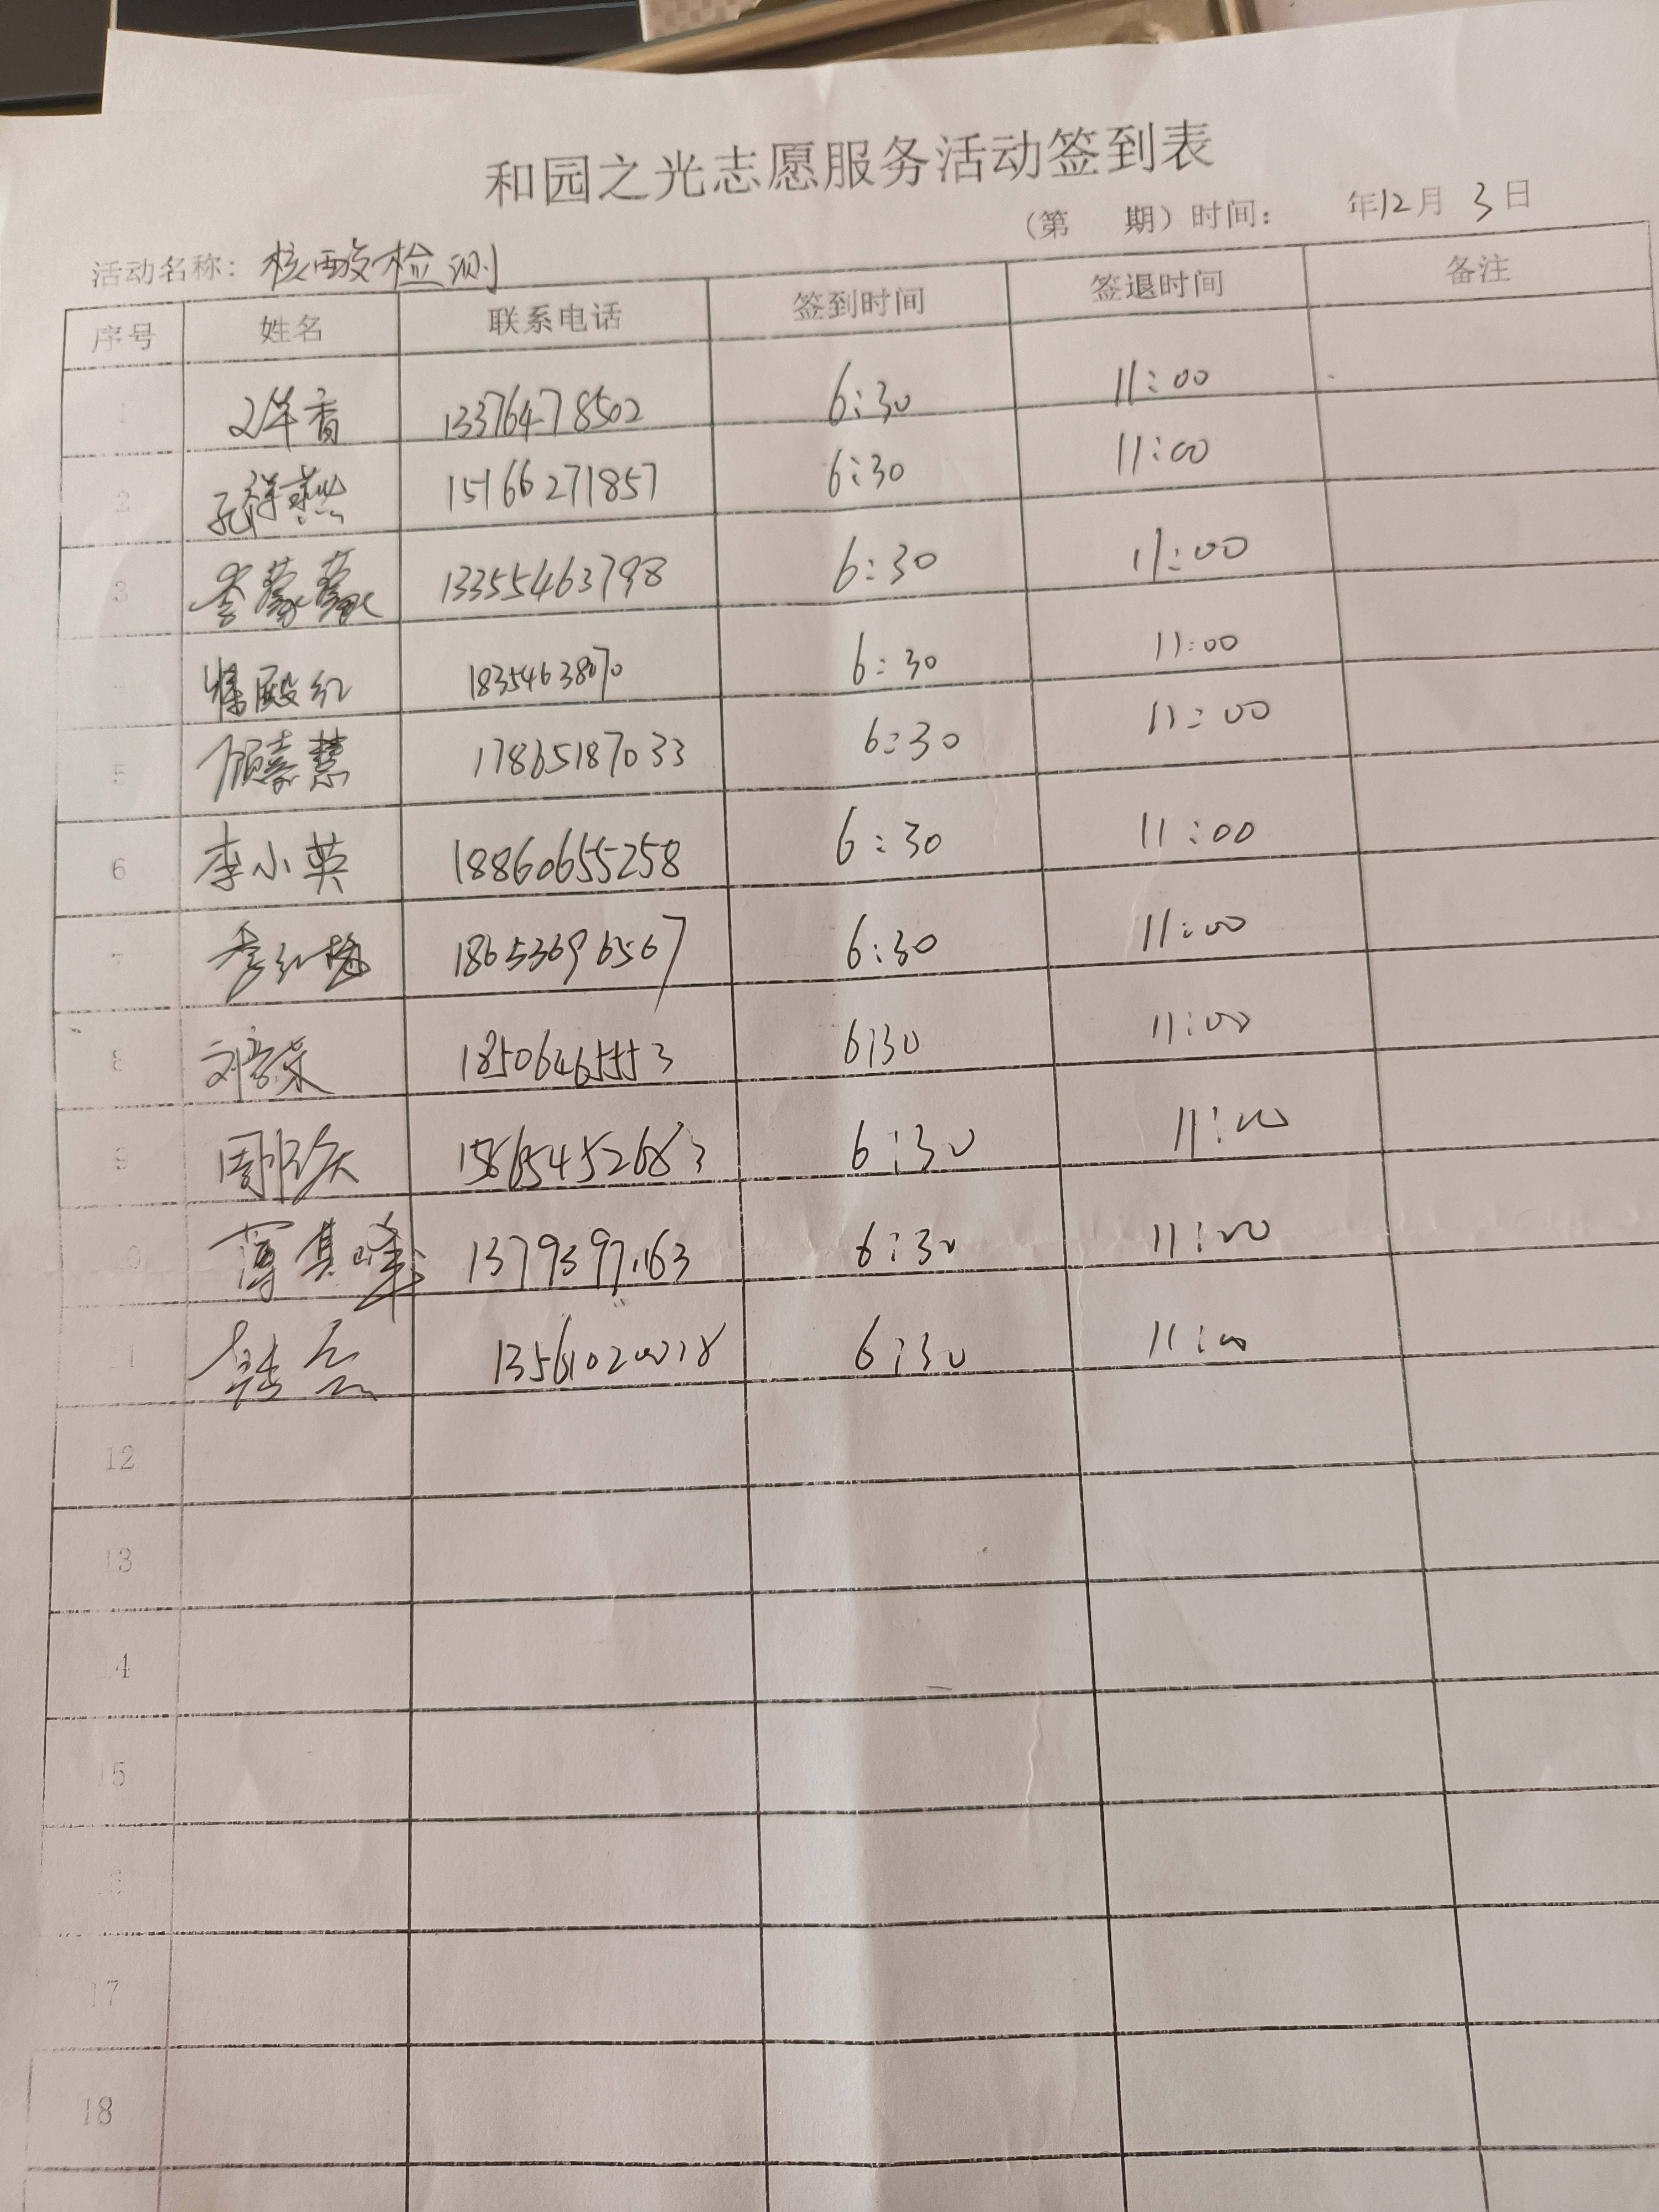 和园之光志愿服务活动签到表
（第 期）时间： 年12月 3日
活动名称：核酸检测
序号 姓名 联系电话 签到时间 签退时间 备注
13376478502 6:30 11:00
2 孔祥燕 15166271857 6:30 11:00
3 李蒙蒙 13355463798 6:30 11:00
殿红 18354638070 6:30 11:00
5 顾秦慧 17865187033 6:30 11:00
6 李小英 18860655258 6:30 11:00
7 李红梅 18653696567 6:30 11:00
8 刘荣 18506465553 6:30 11:00
9 周 15865452683 6:30 11:00
0 薄其峰 6:30 11:00
1 韩 6:30 11:00
12
13
4
15
17
18